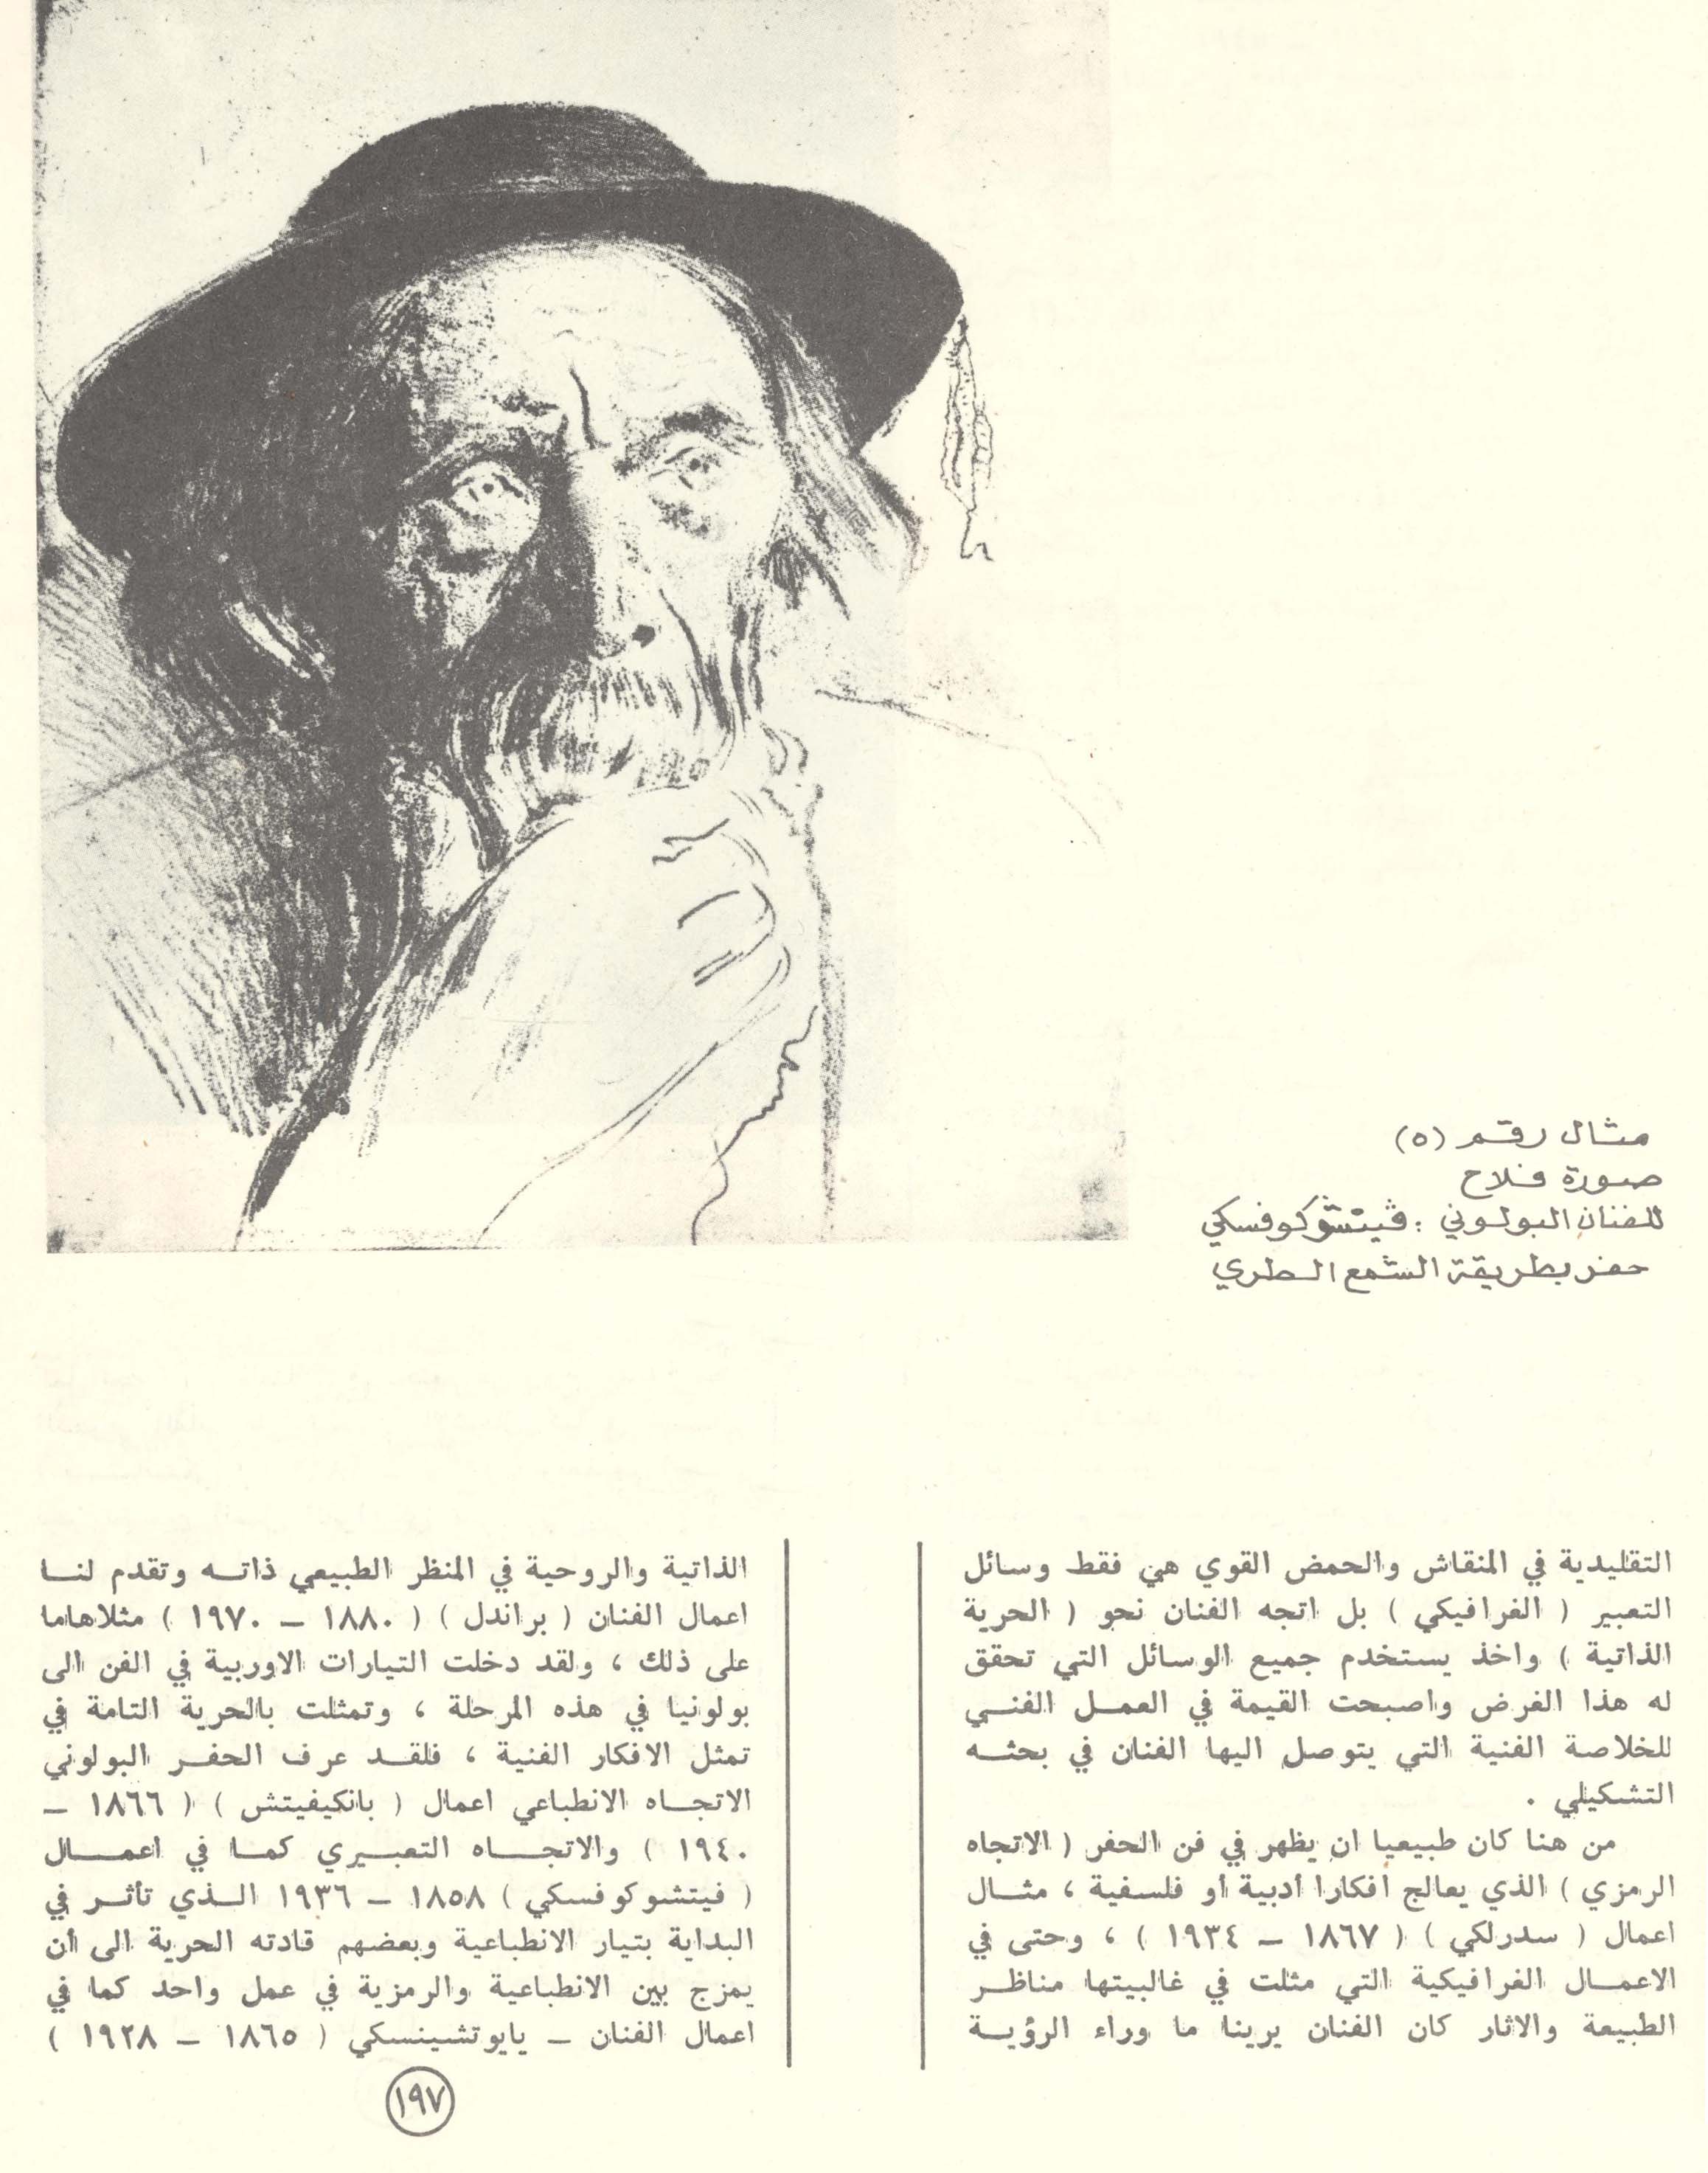 مثال رقم (٥)
صورة فلاح
للفنان البولوني : ڤيتشوكوفسكي
حفر بطريقة الشمع الطري
التقليدية في المنقاش والحمض القوي هي فقط وسائل
التعبير ( الغرافيكي ) بل اتجه الفنان نحو ( الحرية
الذاتية ) واخذ يستخدم جميع الوسائل التي تحقق
له هذا الغرض واصبحت القيمة في العمل الفني
للخلاصة الفنية التي يتوصل اليها الفنان في بحثه
التشكيلي .
من هنا كان طبيعيا ان يظهر في فن الحفر ( الاتجاه
الرمزي ) الذي يعالج افكارا أدبية أو فلسفية ، مثال
اعمال ( سدرلكي ) ( ١٨٦٧ – ١٩٣٤ ) ، وحتى في
الاعمال الغرافيكية التي مثلت في غالبيتها مناظر
الطبيعة والاثار كان الفنان يرينا ما وراء الرؤية
الذاتية والروحية في المنظر الطبيعي ذاته وتقدم لنا
اعمال الفنان ( براندل ) ( ١٨٨٠ – ١٩٧٠ ) مثلاهاما
على ذلك ، ولقد دخلت التيارات الاوربية في الفن الى
بولونيا في هذه المرحلة ، وتمثلت بالحرية التامة في
تمثل الافكار الفنية ، فلقد عرف الحفر البولوني
الاتجاه الانطباعي اعمال ( بانكيفيتش ) ( ١٨٦٦ –
١٩٤٠ ) والاتجاه التعبيري كما في اعمال
( فيتشوكوفسكي ) ١٨٥٨ – ١٩٣٦ الذي تأثر في
البداية بتيار الانطباعية وبعضهم قادته الحرية الى أن
يمزج بين الانطباعية والرمزية في عمل واحد كما في
اعمال الفنان – يايوتشينسكي ( ١٨٦٥ – ١٩٢٨ )
١٩٧